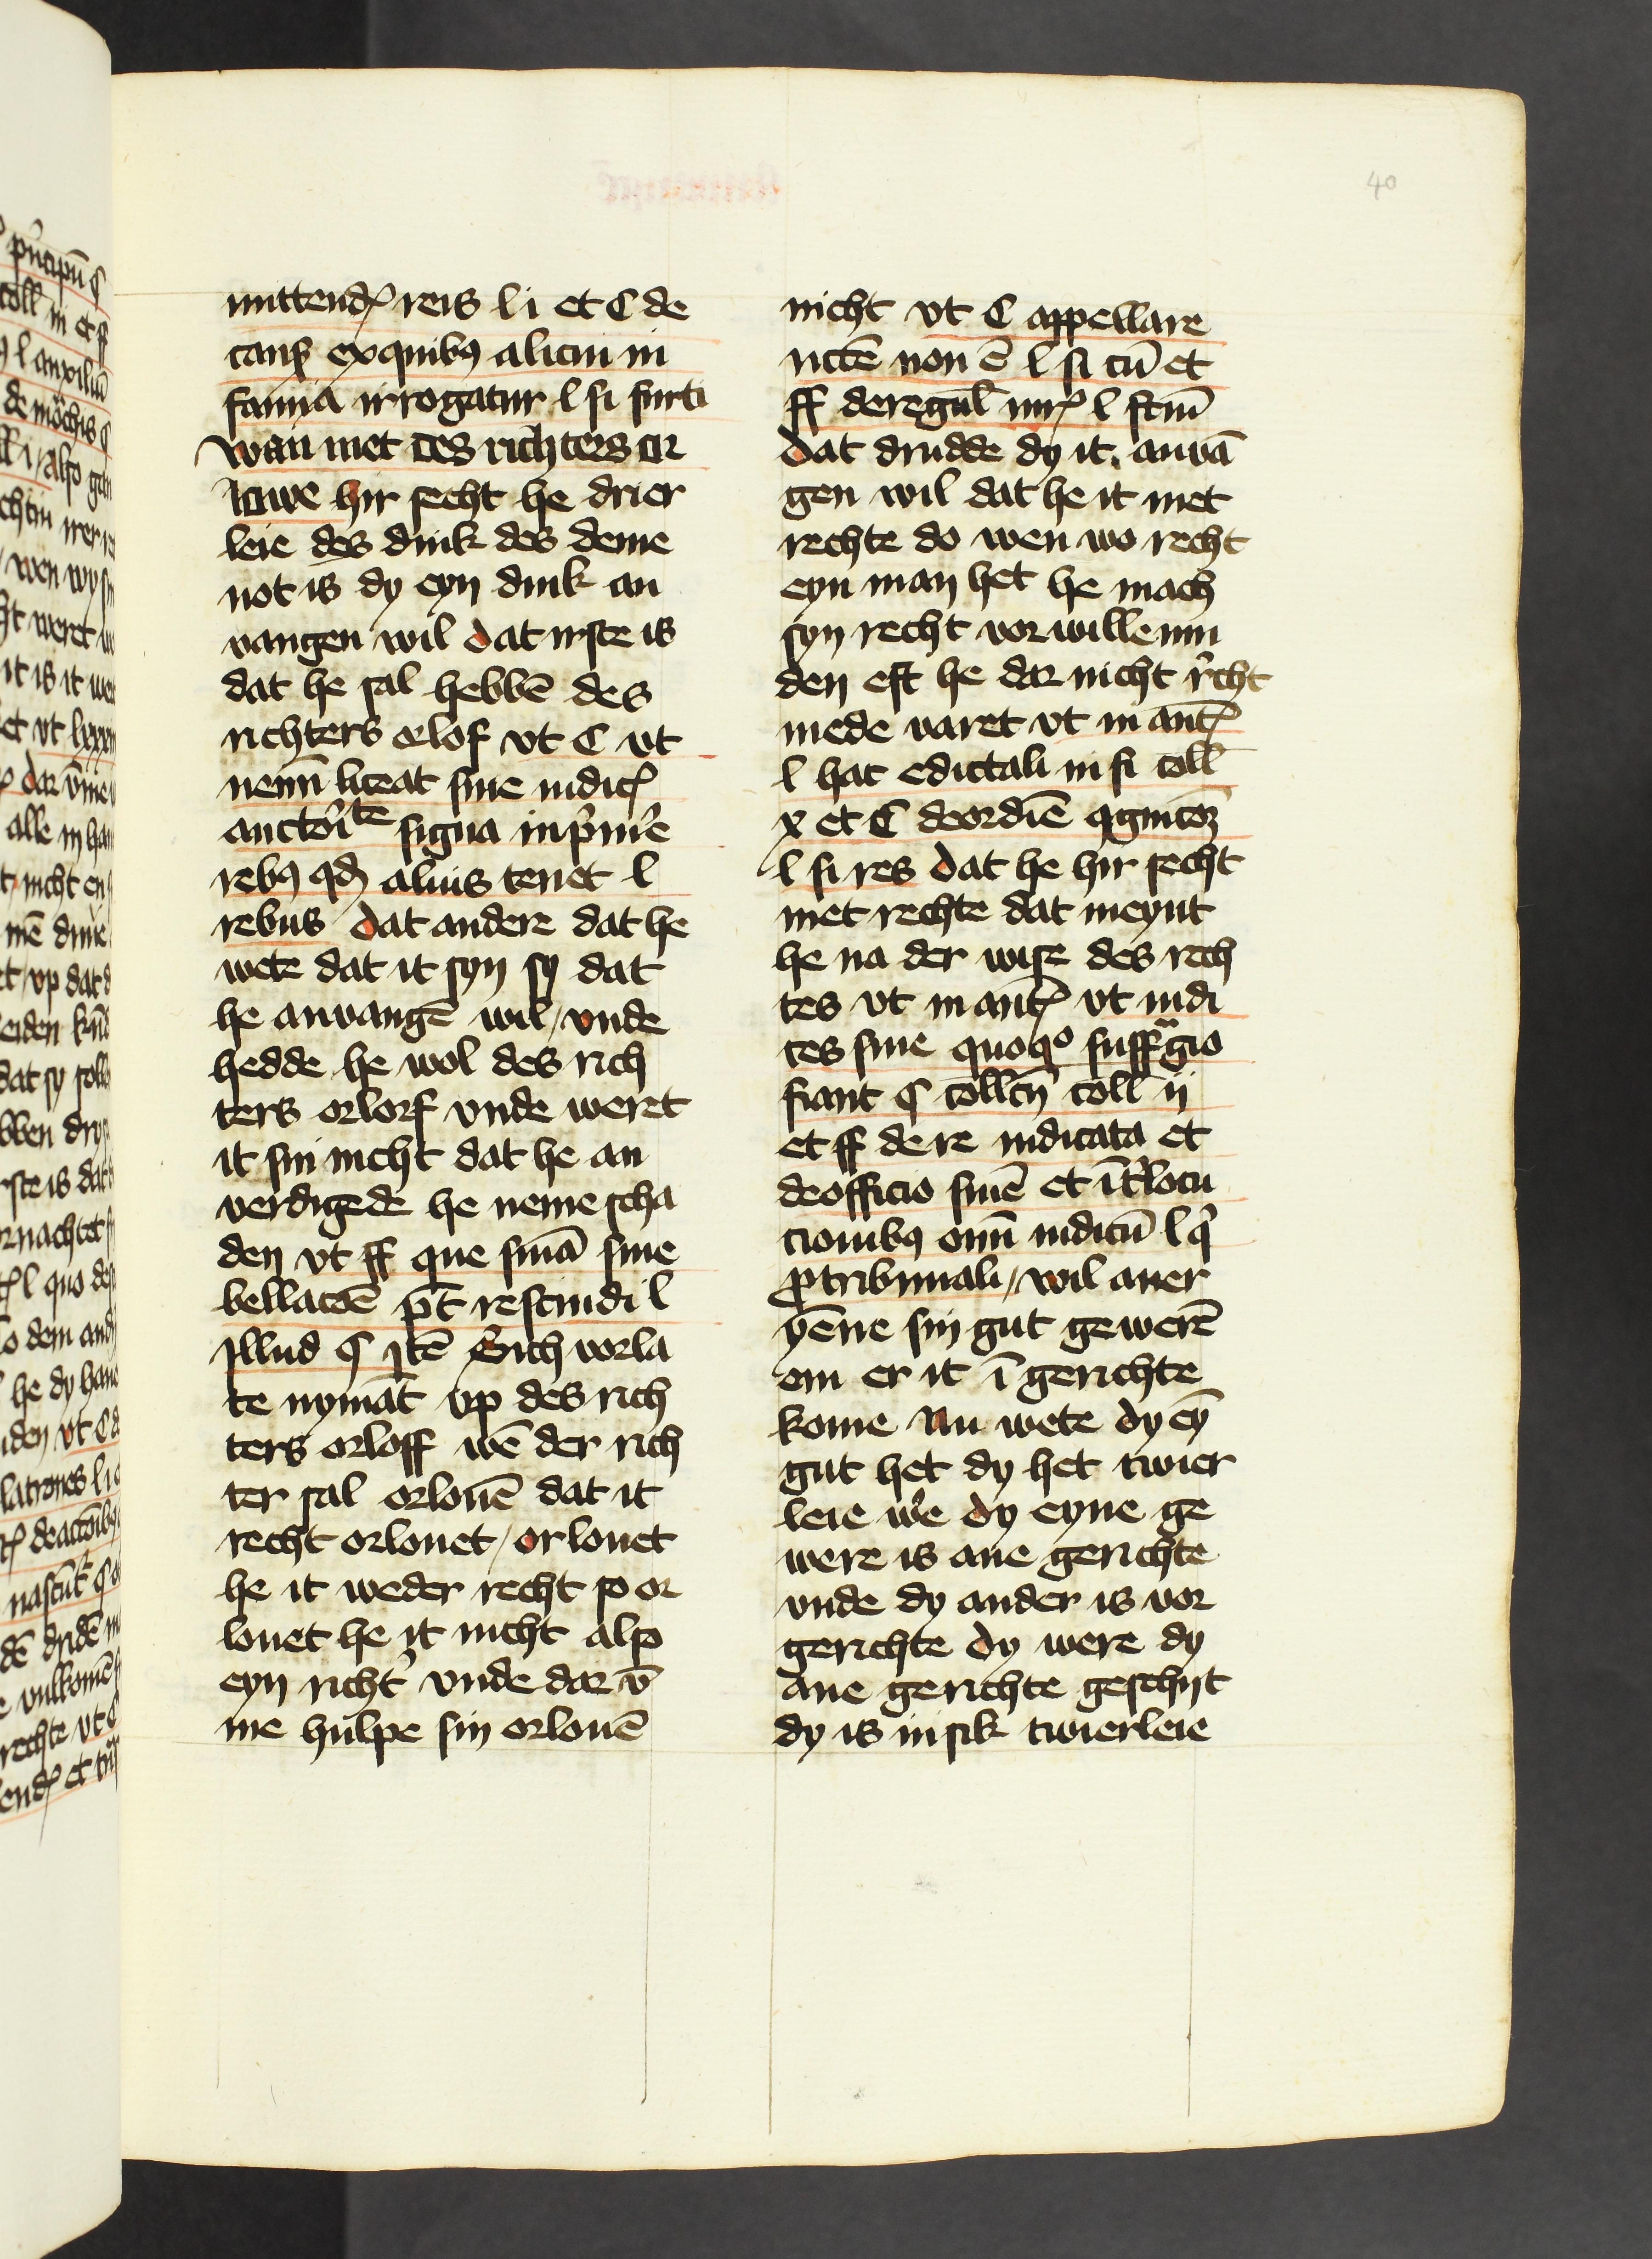 40
mittend reis l i et C de
caus exquibꝰ alicui in
famia irrogatur l si furti
wan met des richters or
lowe hir secht he drier
leie des dink des deme
not is dy eyn dink an
vangen wil dat irste is
dat he sal hebbē des
richters orlof vt C vt
nemī liceat sine iudic
auctorite signa inpͥmͥe
rebꝰ qd aliuis tenet l
rebus dat andere dat he
wete dat it syn sy dat
he anvangē wil / vnde
hedde he wol des rich
ters orlorf vnde weret
it sin nicht dat he an
verdigede he neme scha
den vt ff que sniā sine
bellacōe p̄t rescindi l
Illud § Itē Sich vorla
te nymāt vp des rich
ters orloff wē der rich
ter sal orlouē dat it
recht orlouet / orlouet
he it weder recht so or
louet he it nicht also
eyn richtͬ vnde dar v̄
me hulpe sin orlouē
nicht vt C appellare
nctē non ē l si cū et
ff deregul iur l fctm̄
dat drudde dy it anvā
gen wil dat he it met
rechte do wen wo recht
eyn man het he mach
syn recht vorwille nin
den eft he dar nicht rͤcht
mede varet vt in aut
l hac edictali in fi coll
x et C deordīe ꝯgnicoꝝ
l si res dat he hir secht
met rechte dat meynt
he na der wise des rech
tes vt in aut vt iudi
ces sine quoqͦ suffᷓgio
fiant § collcͫ coll ij
et ff de re iudicata et
deofficio sniē et īt̓locu
cionibꝰ om̄ iudicū l qͥ
ꝓtribunali / wil auer
yēne sin gut gewerē
om er it ī gerichte
kome Nu wete dy eȳ
gut het dy het twier
leie wͤe dy eyne ge
were is ane gerichte
vnde dy ander is vor
gerichte dy were dy
ane gerichte geschyt
dy is in sik twierleie